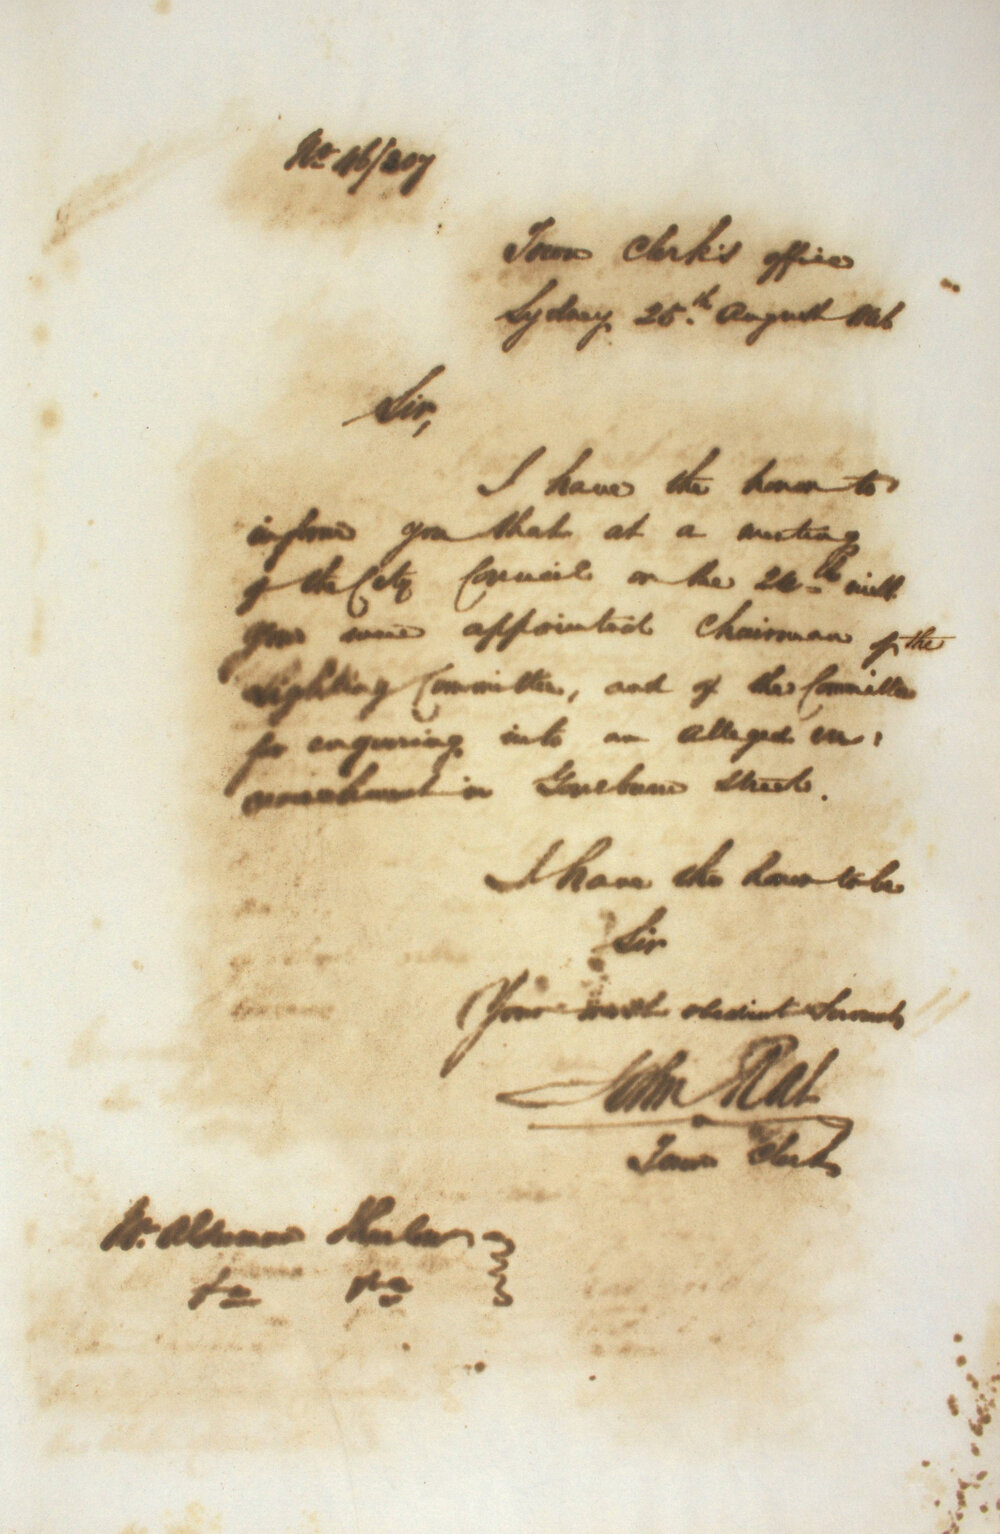 No. 46/207
Town Clerk's office
Sydney 25th August 1846
Sir,
I have the honor to
inform you that at a meeting
of the City Council on the 24th inst.
you were appointed Chairman of the
Lighting Committee, and of the Committee
for enquiring into an alleged en:
croachment in Goulburn Street.
I have the honor to be
Sir
Your most obedient Servant
John Rae
Town Clerk
Mr. Alderman